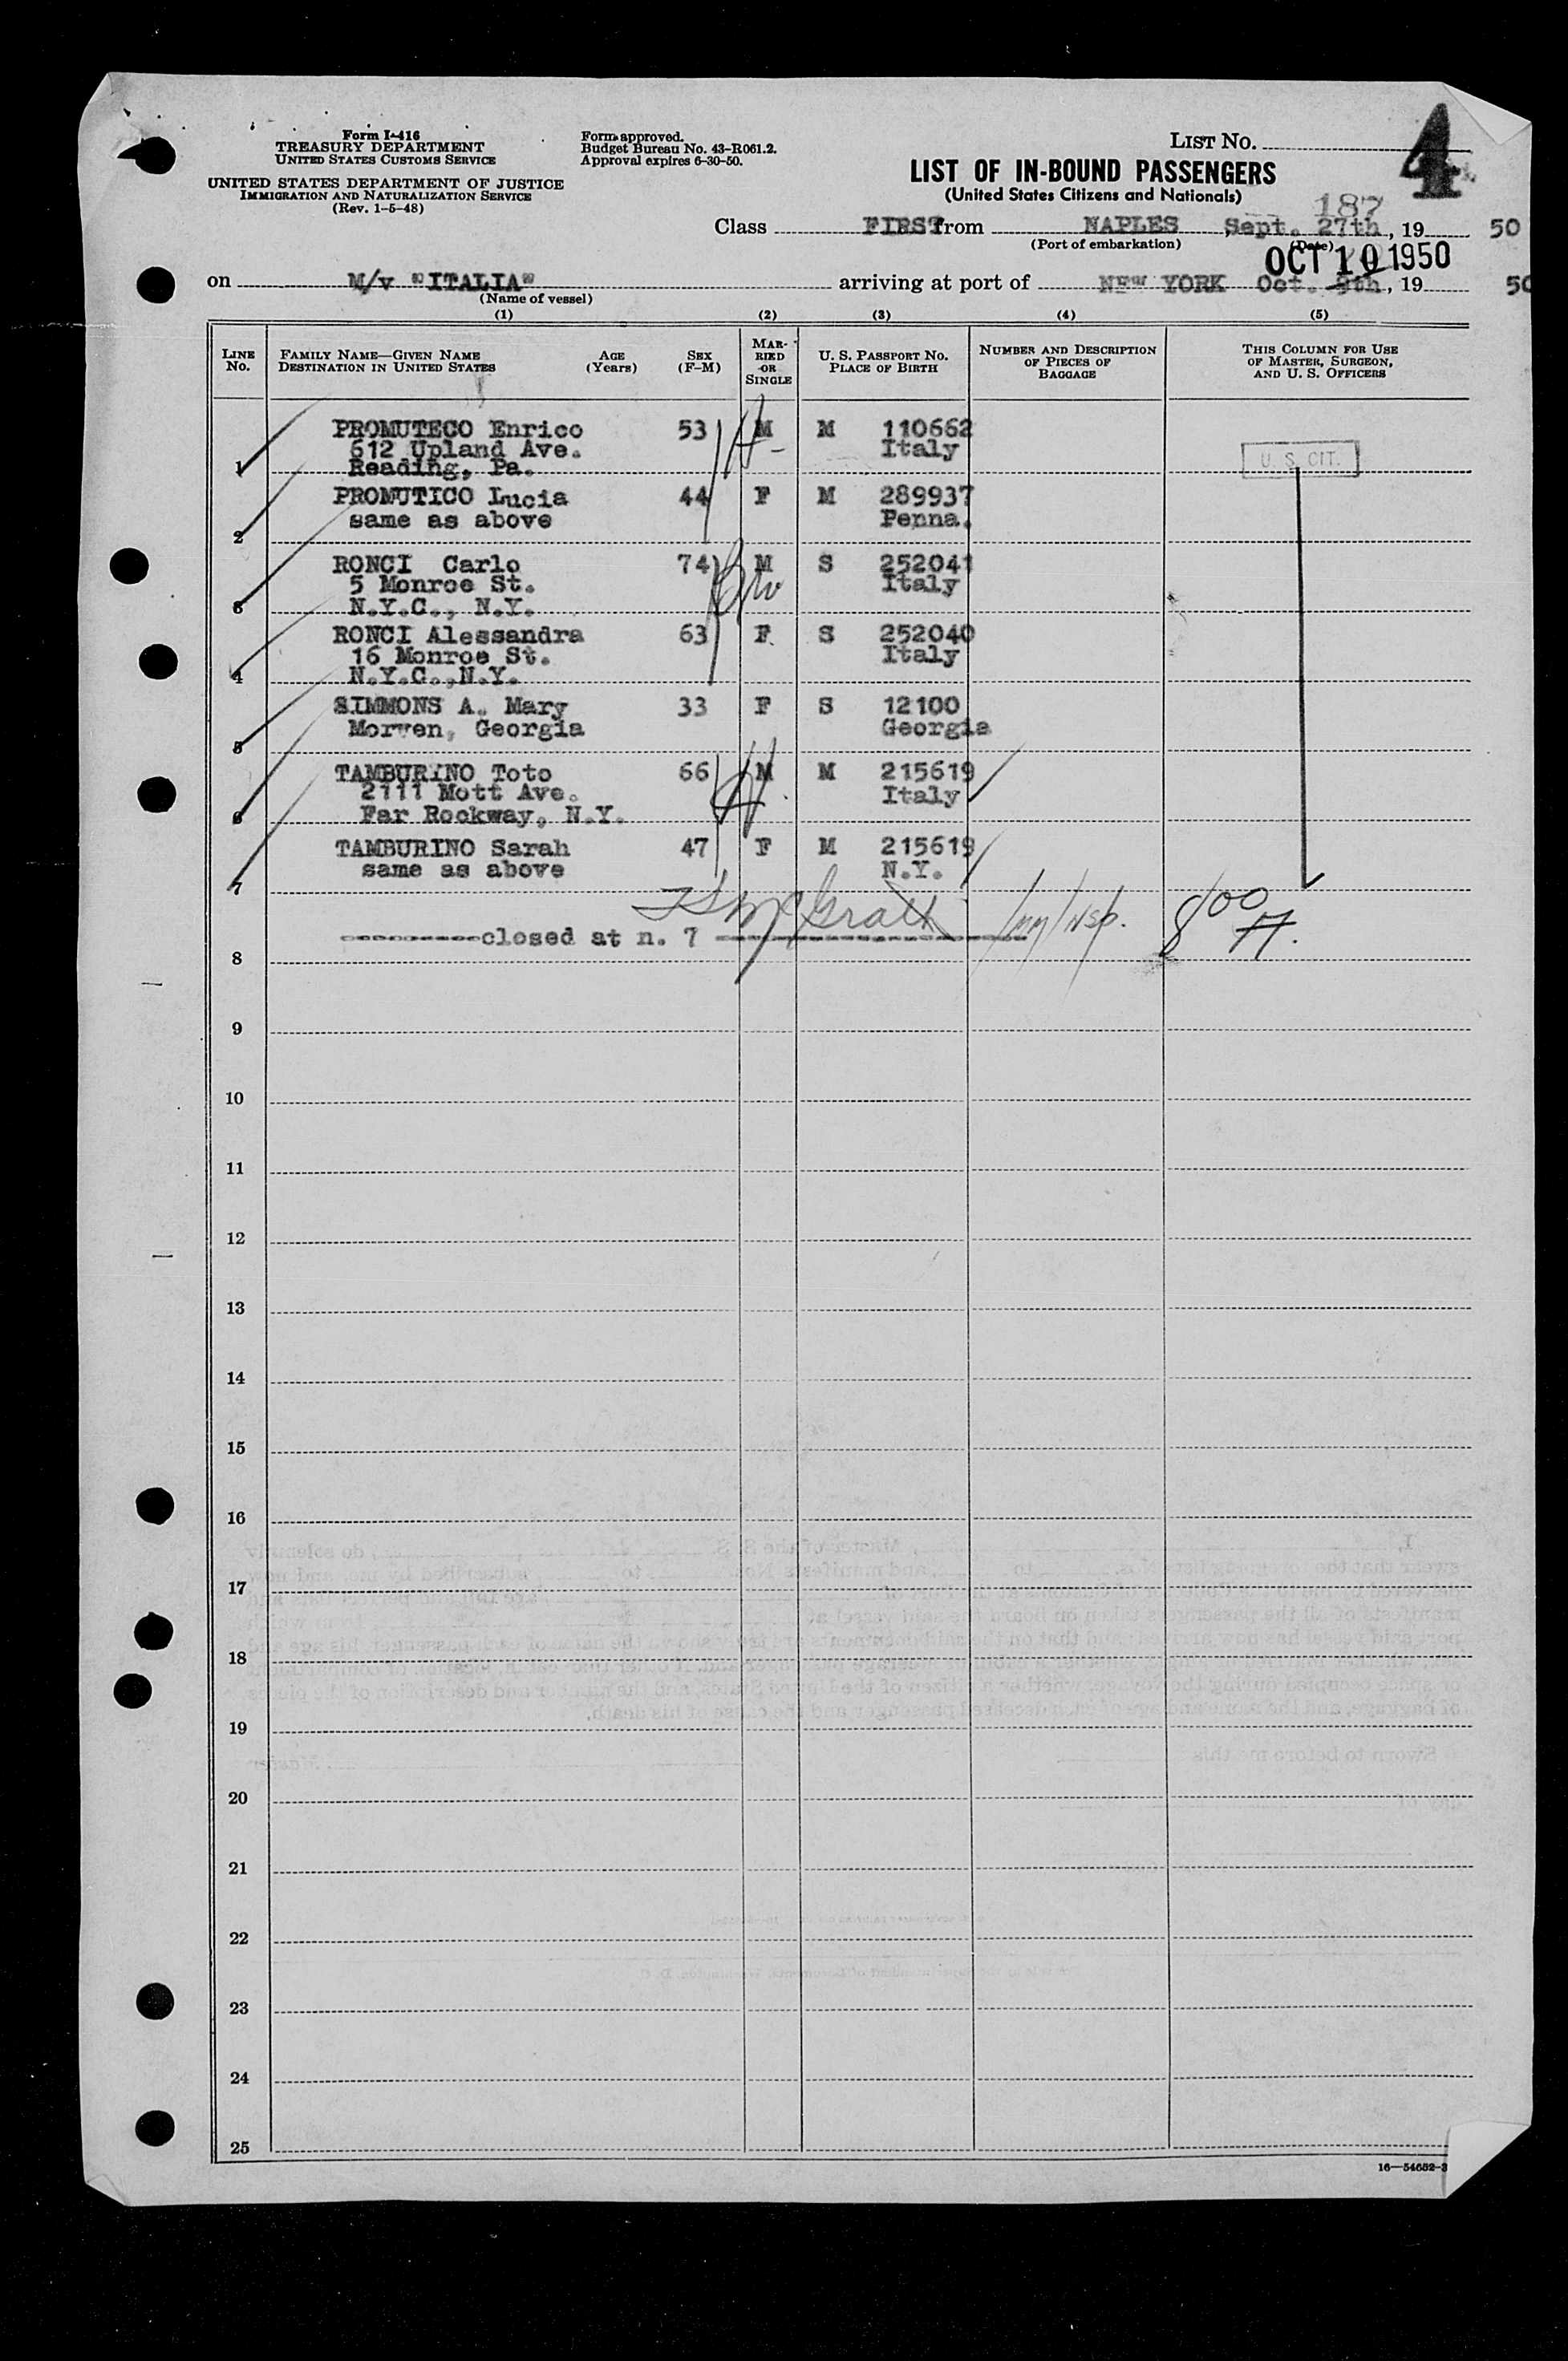 Form I-416
TREASURY DEPARTMENT
UNITED STATES CUSTOMS SERVICE
UNITED STATES DEPARTMENT OF JUSTICE
IMMIGRATION AND NATURALIZATION SERVICE
(Rev. 1-5-48)
Form approved.
Budget Bureau No. 43-R061.2.
Approval expires 6-30-50.
LIST NO. 4
LIST OF IN-BOUND PASSENGERS
(United States Citizens and Nationals)
187
Class FIRST from NAPLES, Sept. 27th, 19 50
(Port of embarkation) (Date)
OCT 10 1950
on M/v "ITALIA" arriving at port of NEW YORK Oct. 9th, 19 50
(Name of vessel)
(1) (2) (3) (4) (5)
LINE NO.
FAMILY NAME—GIVEN NAME
DESTINATION IN UNITED STATES
AGE (Years)
SEX (F-M)
MARRIED OR SINGLE
U. S. PASSPORT NO.
PLACE OF BIRTH
NUMBER AND DESCRIPTION OF PIECES OF BAGGAGE
THIS COLUMN FOR USE OF MASTER, SURGEON, AND U. S. OFFICERS
PROMUTECO Enrico 53 M M 110662
612 Upland Ave. Italy
1 Reading, Pa. U. S. CIT.
PROMUTICO Lucia 44 F M 289937
same as above Penna.
2
RONCI Carlo 74 M S 252041
5 Monroe St. Italy
3 N.Y.C., N.Y.
RONCI Alessandra 63 F S 252040
16 Monroe St. Italy
4 N.Y.C.,N.Y.
SIMMONS A. Mary 33 F S 12100
Morven, Georgia Georgia
5
TAMBURINO Toto 66 M M 215619
2111 Mott Ave. Italy
6 Far Rockway, N.Y.
TAMBURINO Sarah 47 F M 215619
same as above N.Y.
7
McGrath Imm Insp. 800
closed at n. 7
8
9
10
11
12
13
14
15
16
17
18
19
20
21
22
23
24
25
16—54652-3